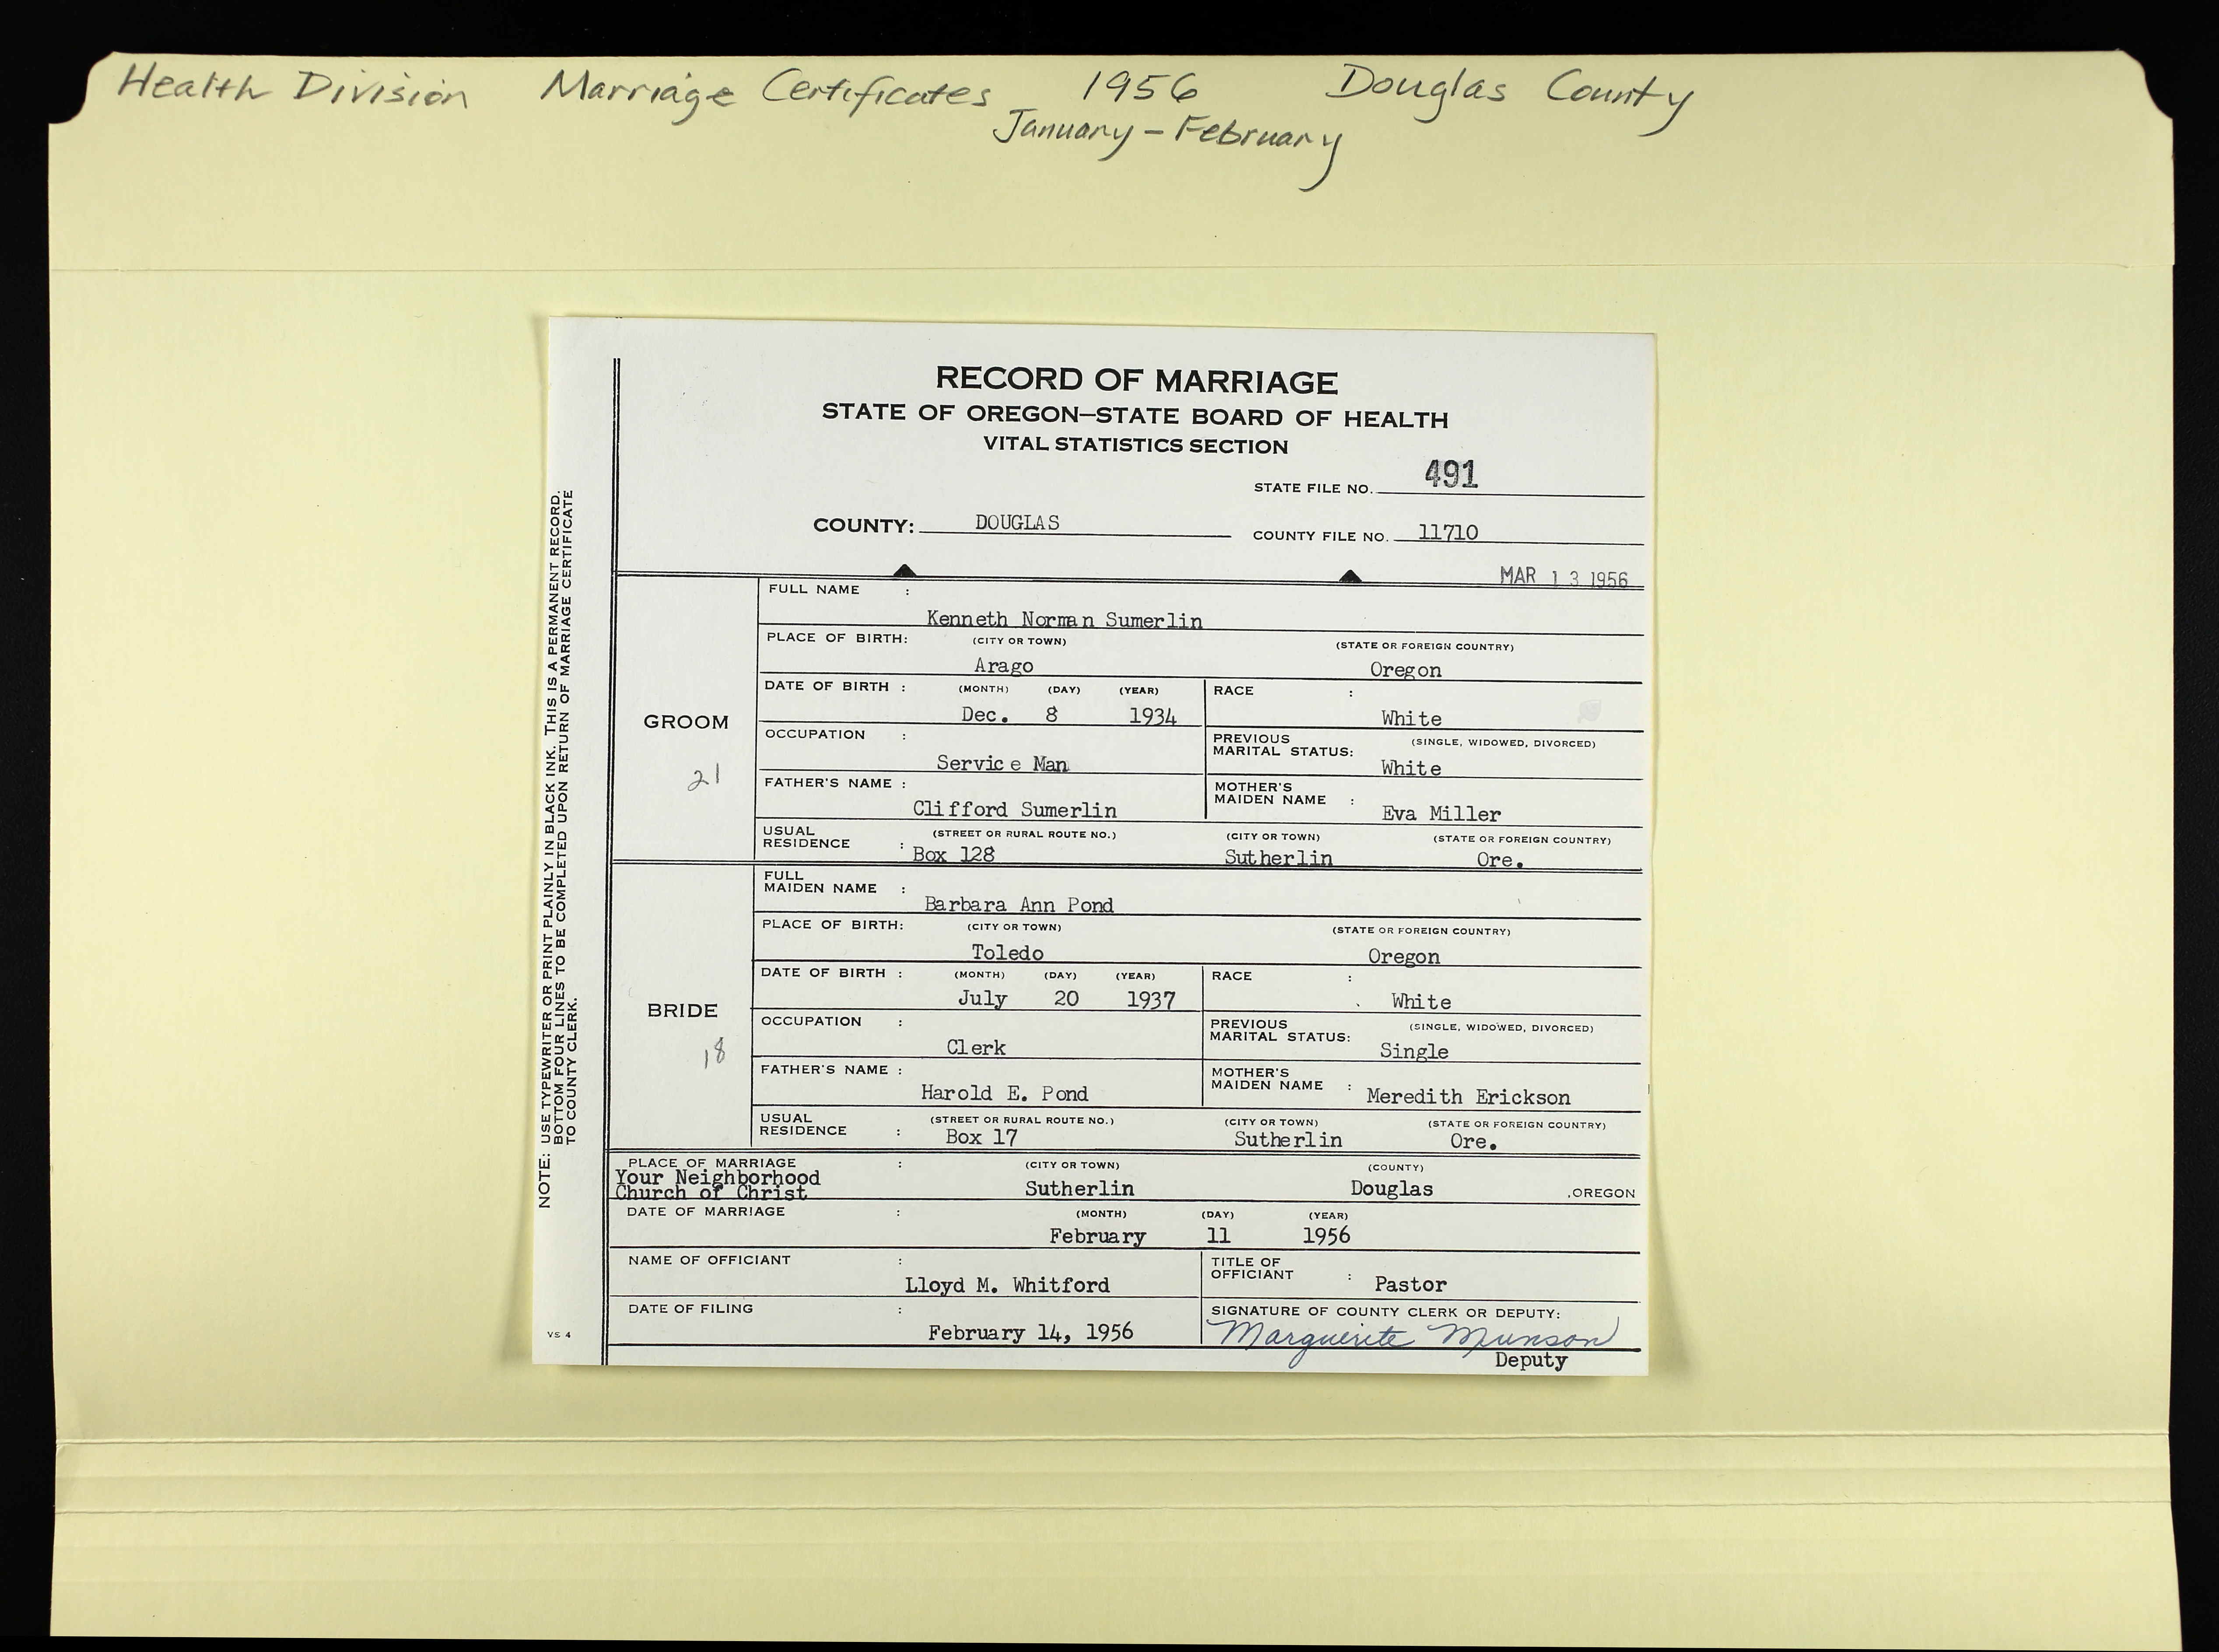 Health Division Marriage Certificates 1956 Douglas County
January - February
RECORD OF MARRIAGE
STATE OF OREGON—STATE BOARD OF HEALTH
VITAL STATISTICS SECTION
STATE FILE NO. 491
COUNTY: DOUGLAS COUNTY FILE NO. 11710
MAR 13 1956
GROOM
21
FULL NAME :
Kenneth Norman Sumerlin
PLACE OF BIRTH: (CITY OR TOWN) (STATE OR FOREIGN COUNTRY)
Arago Oregon
DATE OF BIRTH : (MONTH) (DAY) (YEAR) RACE :
Dec. 8 1934 White
OCCUPATION : PREVIOUS MARITAL STATUS: (SINGLE, WIDOWED, DIVORCED)
Service Man White
FATHER'S NAME : MOTHER'S MAIDEN NAME :
Clifford Sumerlin Eva Miller
USUAL RESIDENCE : (STREET OR RURAL ROUTE NO.) (CITY OR TOWN) (STATE OR FOREIGN COUNTRY)
Box 128 Sutherlin Ore.
BRIDE
18
FULL MAIDEN NAME :
Barbara Ann Pond
PLACE OF BIRTH: (CITY OR TOWN) (STATE OR FOREIGN COUNTRY)
Toledo Oregon
DATE OF BIRTH : (MONTH) (DAY) (YEAR) RACE :
July 20 1937 White
OCCUPATION : PREVIOUS MARITAL STATUS: (SINGLE, WIDOWED, DIVORCED)
Clerk Single
FATHER'S NAME : MOTHER'S MAIDEN NAME :
Harold E. Pond Meredith Erickson
USUAL RESIDENCE : (STREET OR RURAL ROUTE NO.) (CITY OR TOWN) (STATE OR FOREIGN COUNTRY)
Box 17 Sutherlin Ore.
PLACE OF MARRIAGE : (CITY OR TOWN) (COUNTY)
Your Neighborhood
Church of Christ Sutherlin Douglas , OREGON
DATE OF MARRIAGE : (MONTH) (DAY) (YEAR)
February 11 1956
NAME OF OFFICIANT : TITLE OF OFFICIANT :
Lloyd M. Whitford Pastor
DATE OF FILING : SIGNATURE OF COUNTY CLERK OR DEPUTY:
February 14, 1956 Marguerite Munson
Deputy
NOTE: USE TYPEWRITER OR PRINT PLAINLY IN BLACK INK. THIS IS A PERMANENT RECORD.
BOTTOM FOUR LINES TO BE COMPLETED UPON RETURN OF MARRIAGE CERTIFICATE
TO COUNTY CLERK.
VS 4